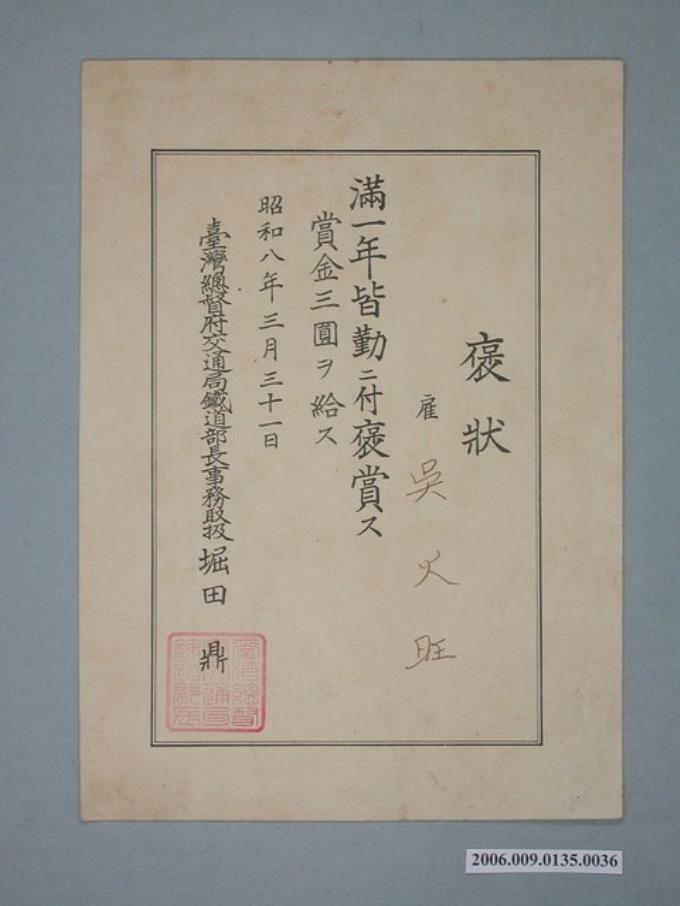 褒狀
雇 吳火旺
滿一年皆勤ニ付褒賞ス
賞金三圓ヲ給ス
昭和八年三月三十一日
臺灣總督府交通局鐵道部長事務取扱 堀田鼎
2006.009.0135.0036